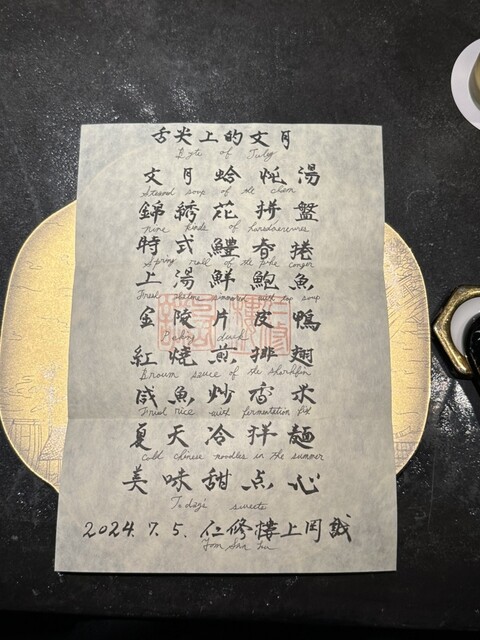 舌尖上的文月
Byte of July
文月蛤忳湯
Steamed soup of the clam
錦绣花拼盤
nine kinds of horsdoeuvres
時式鱧春捲
Spring roll of the pike conger
上湯鮮鮑魚
Fresh abalone with top soup
金陵片皮鴨
Peking duck
紅燒煎排翅
Broum sauce of the sharkfin
咸魚炒香米
Fried rice with fermentation fish
夏天冷拌麵
Cold chinese noodles in the summer
美味甜点心
Todays sweets
2024.7.5. 仁修樓上岡誠